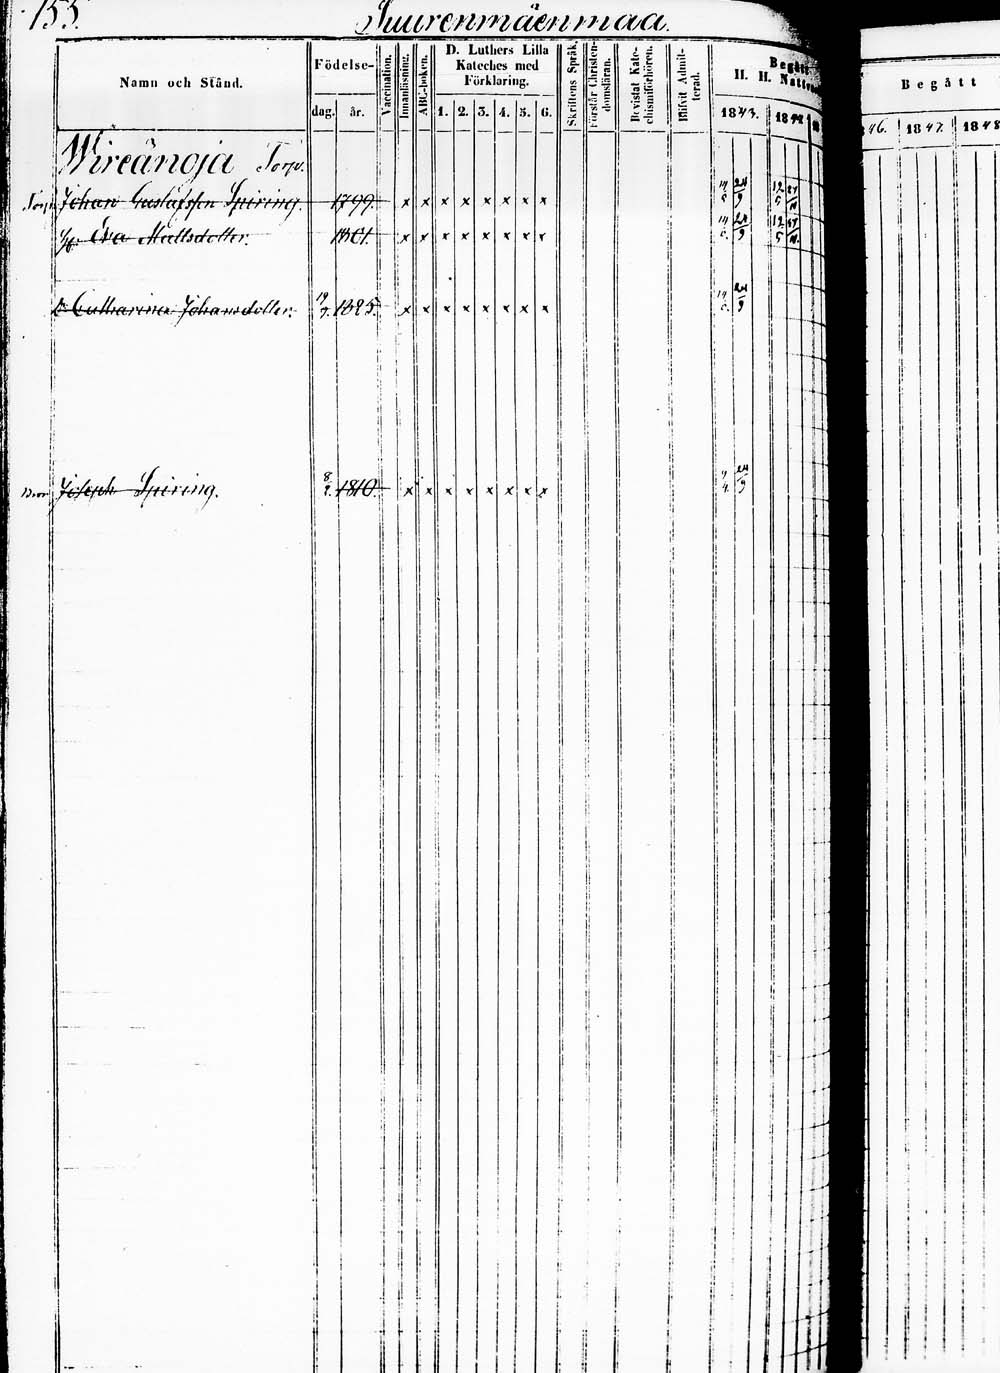 155.
Suurenmäenmaa.
Namn och Stånd.
Födelse-
dag. år.
Vaccination.
Innanläsning.
ABC-boken.
D. Luthers Lilla
Kateches med
Förklaring.
1. 2. 3. 4. 5. 6.
Skriftens Språk.
Förstår Christen-
domsläran.
Bevistat Kate-
chismiförhören.
Blifvit Admit-
terad.
Begått
H. H. Nattv
1843. 1844.
Begått
46. 1847. 1848
Wireänoja Torp.
Torp. Johan Gustafsson Spiring. 1799. x x x x x x x x
H. Eva Mattsdotter. 1801. x x x x x x x x
D. Catharina Johansdotter. 19/7. 1825. x x x x x x x x
Bror Joseph Spiring. 8/2. 1810. x x x x x x x x